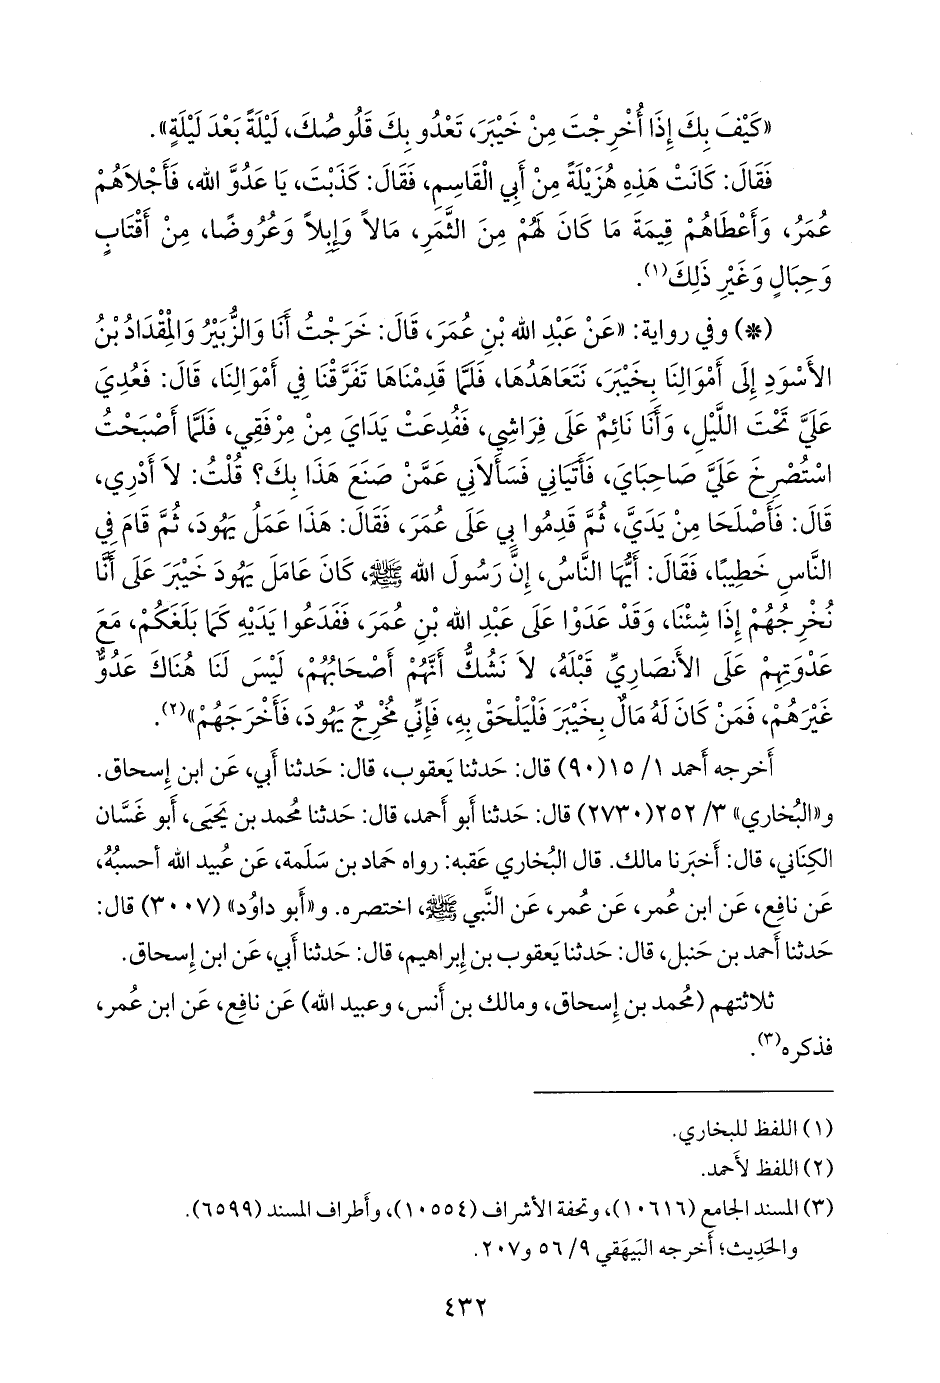 «كَيْفَ بِكَ إِذَا أُخْرِجْتَ مِنْ خَيْبَرَ، تَعْدُو بِكَ قَلُوصُكَ، لَيْلَةً بَعْدَ لَيْلَةٍ».
فَقَالَ: كَانَتْ هَذِهِ هُزَيْلَةً مِنْ أَبِي الْقَاسِمِ، فَقَالَ: كَذَبْتَ، يَا عَدُوَّ الله، فَأَجْلاَهُمْ
عُمَرُ، وَأَعْطَاهُمْ قِيمَةَ مَا كَانَ لَهُمْ مِنَ الثَّمَرِ، مَالاً وَإِبِلاً وَعُرُوضًا، مِنْ أَقْتَابٍ
وَحِبَالٍ وَغَيْرِ ذَلِكَ(١).
(*) وفي رواية: «عَنْ عَبْدِ الله بْنِ عُمَرَ، قَالَ: خَرَجْتُ أَنَا وَالزُّبَيْرُ وَالْمِقْدَادُ بْنُ
الأَسْوَدِ إِلَى أَمْوَالِنَا بِخَيْبَرَ، نَتَعَاهَدُهَا، فَلَمَّا قَدِمْنَاهَا تَفَرَّقْنَا فِي أَمْوَالِنَا، قَالَ: فَعُدِيَ
عَلَيَّ تَحْتَ اللَّيْلِ، وَأَنَا نَائِمٌ عَلَى فِرَاشِي، فَفُدِعَتْ يَدَايَ مِنْ مِرْفَقِي، فَلَمَّا أَصْبَحْتُ
اسْتُصْرِخَ عَلَيَّ صَاحِبَايَ، فَأَتَيَانِي فَسَأَلاَنِي عَمَّنْ صَنَعَ هَذَا بِكَ؟ قُلْتُ: لاَ أَدْرِي،
قَالَ: فَأَصْلَحَا مِنْ يَدَيَّ، ثُمَّ قَدِمُوا بِي عَلَى عُمَرَ، فَقَالَ: هَذَا عَمَلُ يَهُودَ، ثُمَّ قَامَ فِي
النَّاسِ خَطِيبًا، فَقَالَ: أَيُّهَا النَّاسُ، إِنَّ رَسُولَ الله ﷺ، كَانَ عَامَلَ يَهُودَ خَيْبَرَ عَلَى أَنَّا
نُخْرِجُهُمْ إِذَا شِئْنَا، وَقَدْ عَدَوْا عَلَى عَبْدِ الله بْنِ عُمَرَ، فَفَدَعُوا يَدَيْهِ كَمَا بَلَغَكُمْ، مَعَ
عَدْوَتِهِمْ عَلَى الأَنْصَارِيِّ قَبْلَهُ، لاَ نَشُكُّ أَنَّهُمْ أَصْحَابُهُمْ، لَيْسَ لَنَا هُنَاكَ عَدُوٌّ
غَيْرَهُمْ، فَمَنْ كَانَ لَهُ مَالٌ بِخَيْبَرَ فَلْيَلْحَقْ بِهِ، فَإِنِّي مُخْرِجٌ يَهُودَ، فَأَخْرَجَهُمْ»(٢).
أَخرجه أَحمد ١/ ١٥(٩٠) قال: حَدثنا يَعقوب، قال: حَدثنا أَبي، عَن ابن إِسحاق.
و«البُخاري» ٣/ ٢٥٢(٢٧٣٠) قال: حَدثنا أَبو أَحمد، قال: حَدثنا مُحمد بن يَحيَى، أَبو غَسَّان
الكِنَاني، قال: أَخبَرنا مالك. قال البُخاري عَقبه: رواه حَماد بن سَلَمة، عَن عُبيد الله أَحسبُهُ،
عَن نافِع، عَن ابن عُمر، عَن عُمر، عَن النَّبي ﷺ، اختصره. و«أَبو داوُد» (٣٠٠٧) قال:
حَدثنا أَحمد بن حَنبل، قال: حَدثنا يَعقوب بن إِبراهيم، قال: حَدثنا أَبي، عَن ابن إِسحاق.
ثلاثتهم (مُحمد بن إِسحاق، ومالك بن أَنس، وعبيد الله) عَن نافِع، عَن ابن عُمر،
فذكره(٣).
(١) اللفظ للبخاري.
(٢) اللفظ لأَحمد.
(٣) المسند الجامع (١٠٦١٦)، وتحفة الأشراف (١٠٥٥٤)، وأَطراف المسند (٦٥٩٩).
والحَدِيث؛ أَخرجه البَيهَقي ٩/ ٥٦ و٢٠٧.
٤٣٢